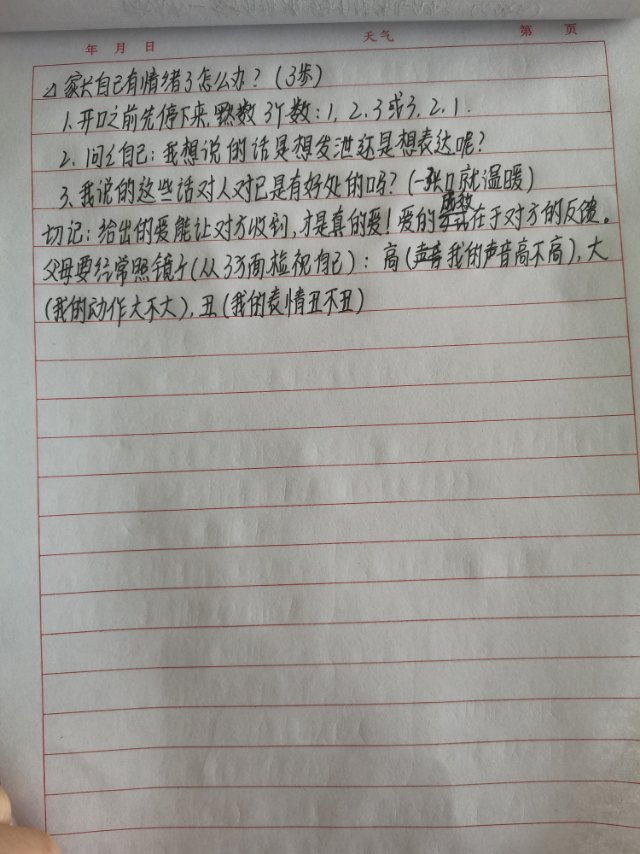 年 月 日 天气 第 页
△家长自己有情绪了怎么办？（3步）
1、开口之前先停下来，默数3个数：1，2，3或3，2，1．
2、问问自己：我想说的话是想发泄还是想表达呢？
3、我说的这些话对人对己是有好处的吗？（一张口就温暖）
切记：给出的爱能让对方收到，才是真的爱！爱的在于对方的反馈。
父母要经常照镜子（从3方面检视自己）：高（声音我的声音高不高），大
（我的动作大不大），丑（我的表情丑不丑）